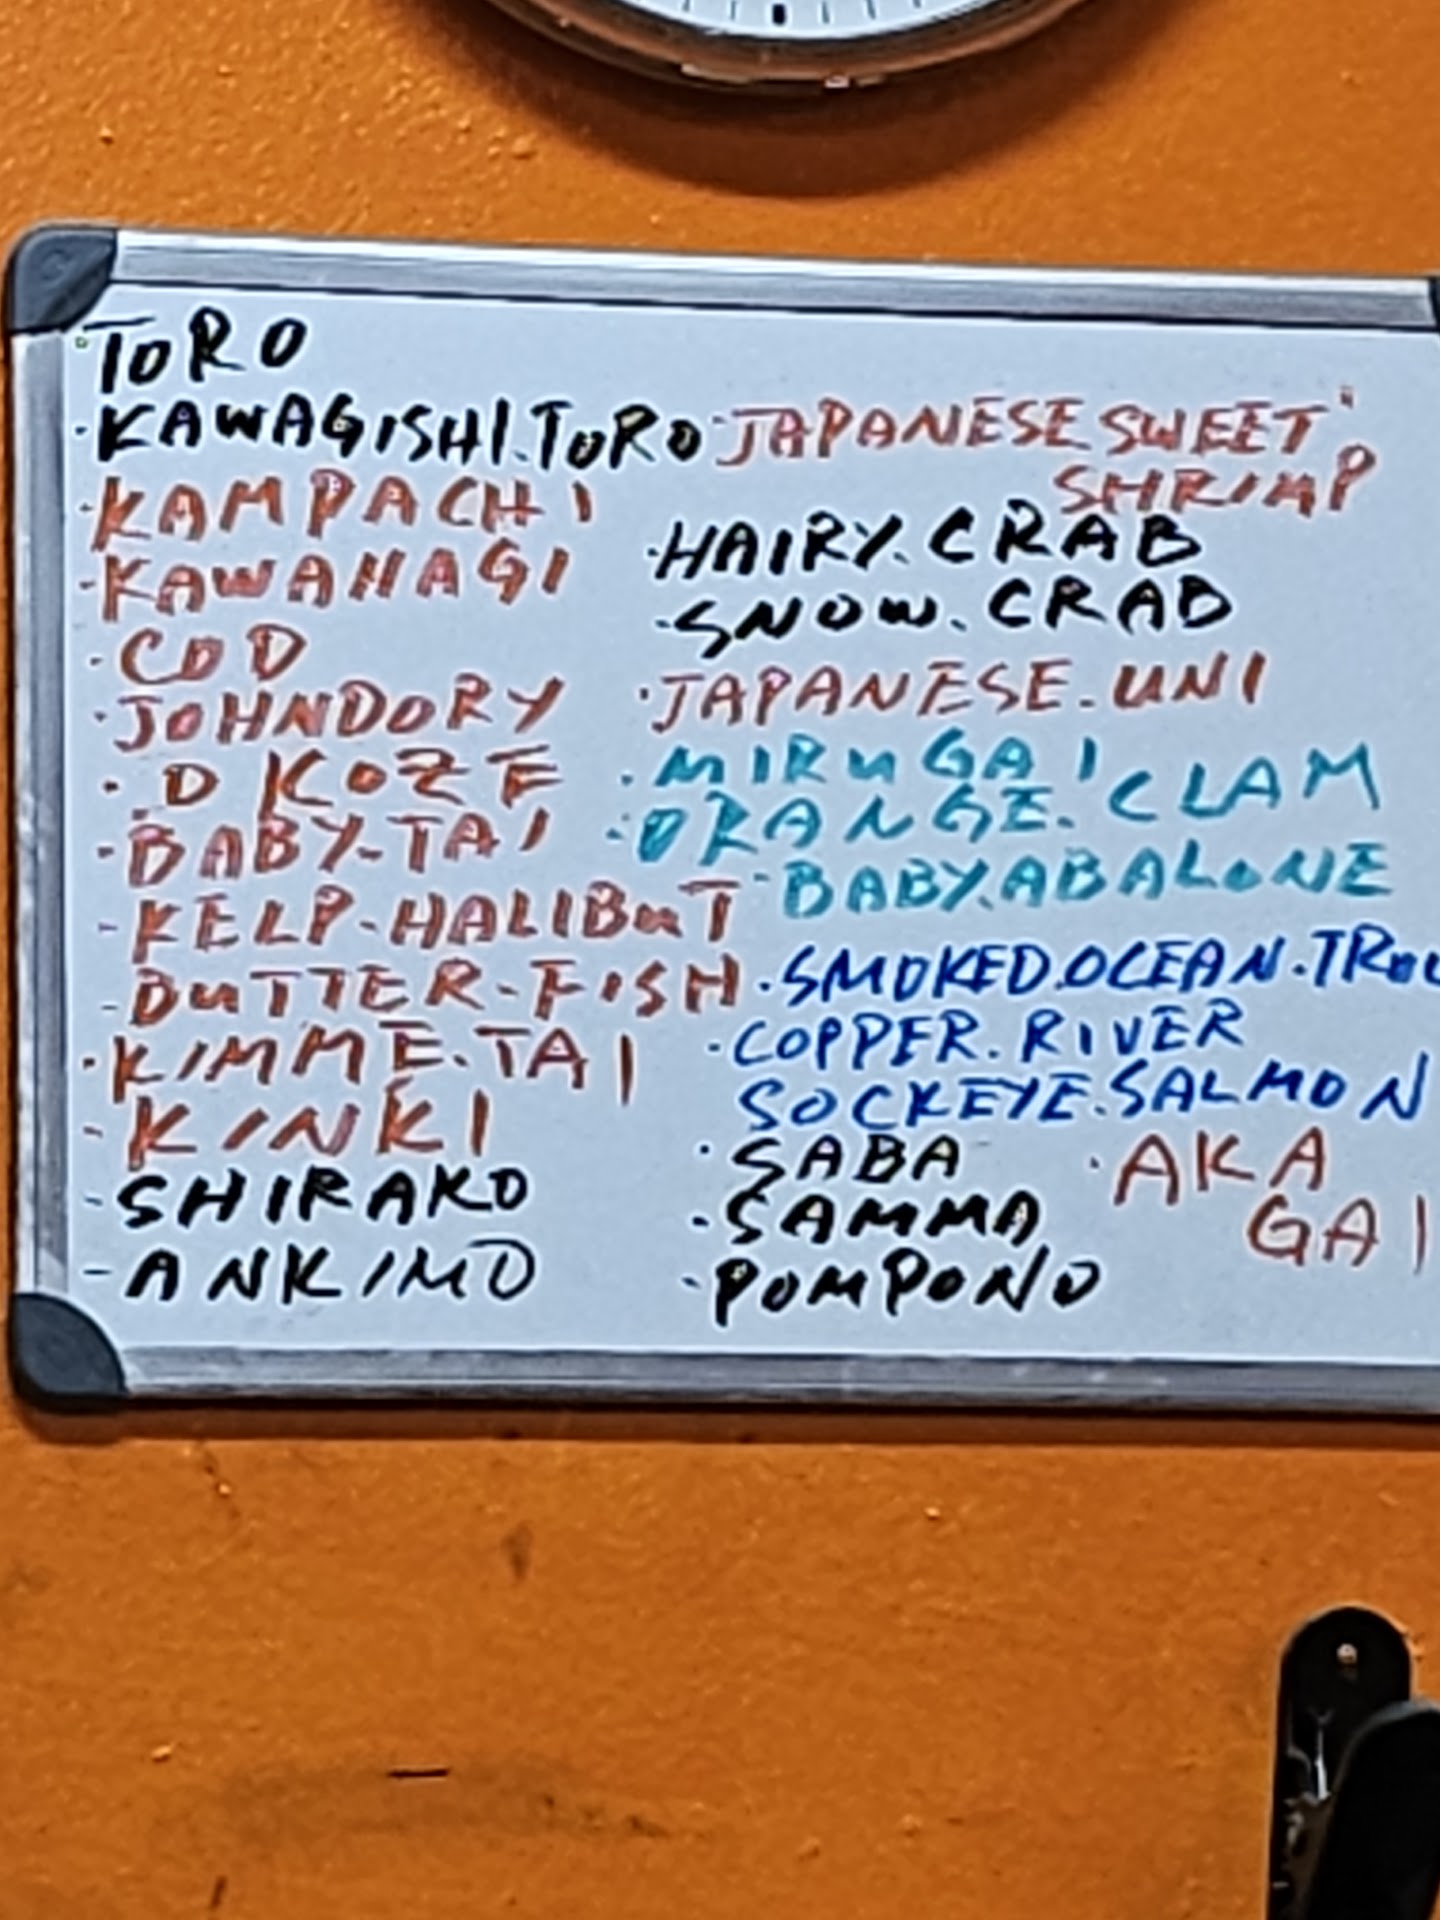 TORO
·KAWAGISHI.TORO
·KAMPACHI
·KAWAHAGI
·COD
·JOHNDORY
·OKOZE
·BABY.TAI
·KELP.HALIBUT
·BUTTER-FISH
·KIMME.TAI
·KINKI
·SHIRAKO
·ANKIMO
·JAPANESE SWEET
SHRIMP
·HAIRY.CRAB
·SNOW.CRAB
·JAPANESE.UNI
·MIRUGAI CLAM
·ORANGE.
·BABY.ABALONE
·SMOKED.OCEAN.TROU
·COPPER.RIVER
SOCKEYE.SALMON
·SABA
·SAMMA
·POMPONO
·AKA
GAI